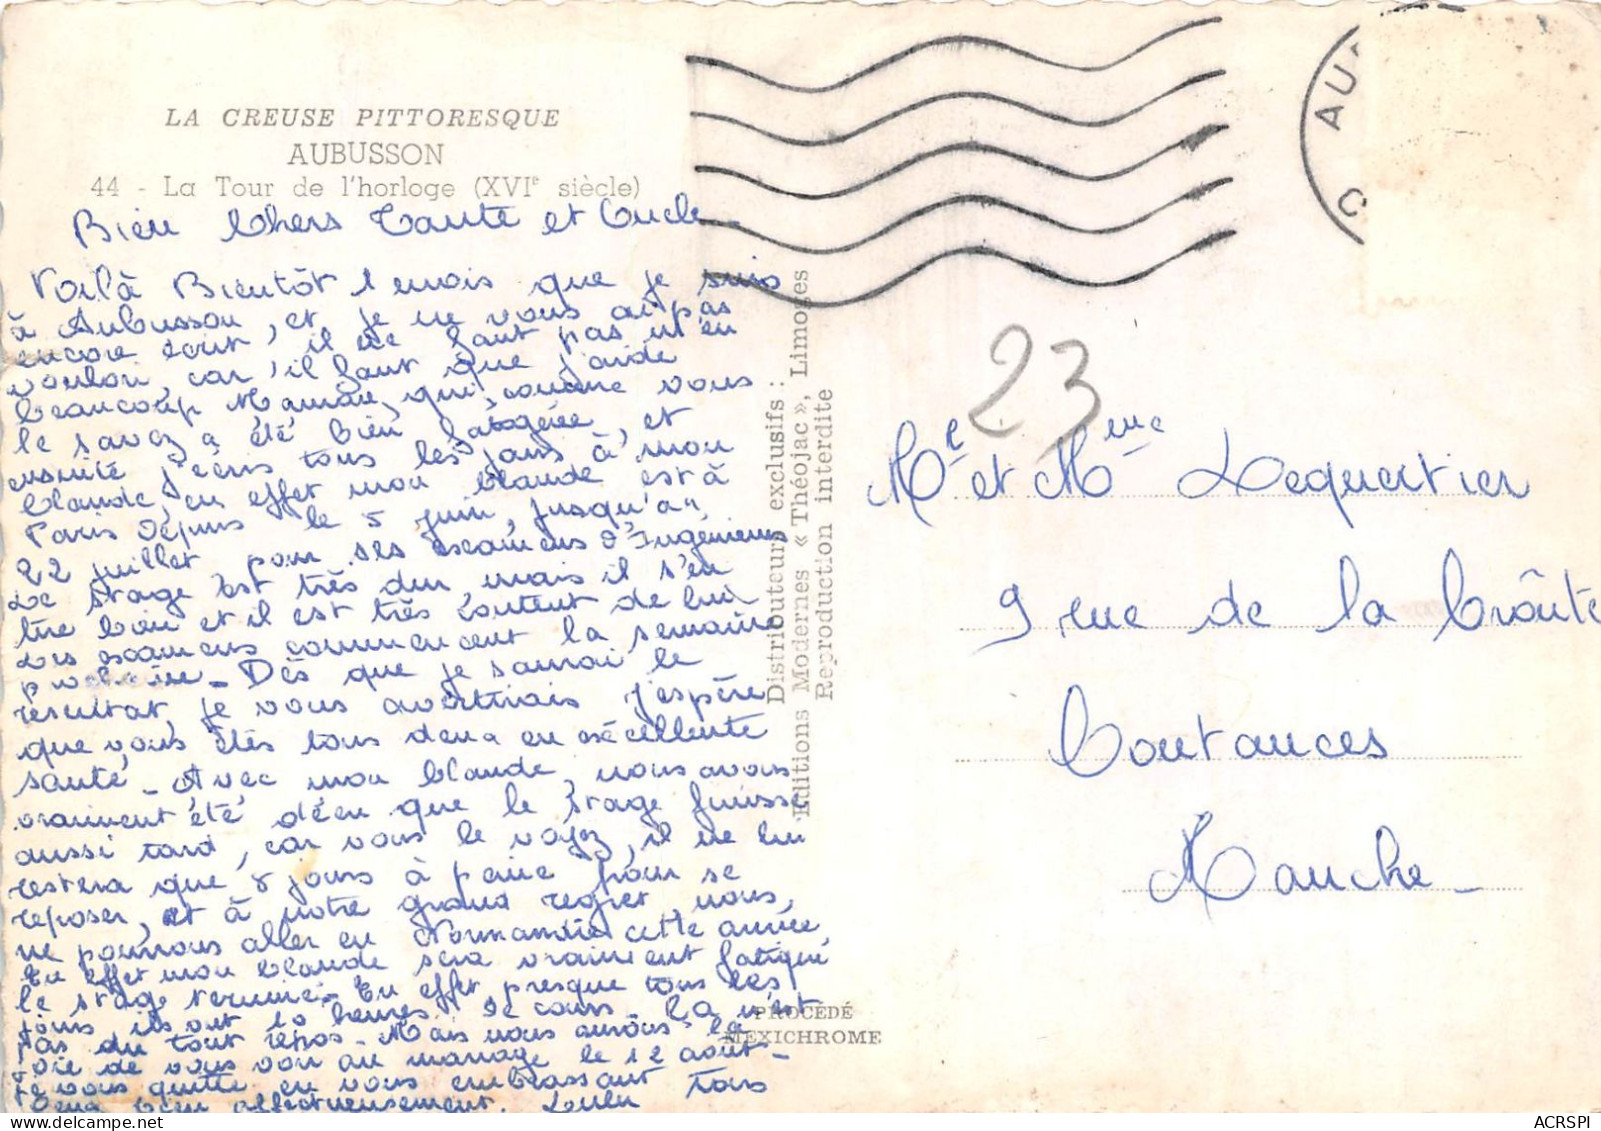 LA CREUSE PITTORESQUE
AUBUSSON
44 - La Tour de l'horloge (XVIe siècle)
Bien Chers Tante et Oncle
Voilà Bientôt 1 mois que je suis
à Aubusson, et je ne vous ai pas
encore écrit, il ne faut pas m'en
vouloir, car il faut que j'aide
beaucoup Maman, qui, comme vous
le savez a été bien fatiguée, et
ensuite j'écris tous les jours à mon
Claude, en effet mon Claude est à
Paris depuis le 5 juin, jusqu'au
22 juillet pour ses examens d'Ingénieurs
Le stage est très dur, mais il s'en
tire bien et il est très content de lui
Les examens commencent la semaine
prochaine - Dès que je saurai le
resultat, je vous avertirais j'espère
que vous êtes tous deux en excellente
santé - Avec mon Claude, nous avons
vraiment été déçu que le stage finisse
aussi tard, car vous le voyez, il ne lui
restera que 8 jours à peine pour se
reposer, et à notre grand regret, nous,
ne pourrons aller en Normandie cette année,
En effet mon Claude sera vraiment fatigué
le stage terminé - En effet presque tous les
jours ils ont 10 heures de cours. Ca n'est
pas du tout repos - Mais nous aurons la
joie de vous voir au mariage le 12 aout -
Je vous quitte en vous embrassant tous
deux bien affectueusement. Lulu
Distributeurs exclusifs :
Editions Modernes « Théojac », Limoges
Reproduction interdite
PROCÉDÉ
MEXICHROME
AU
C
23
Mr et Mme Lequertier
9 rue de la Croûte
Coutances
Manche -
ACRSPI